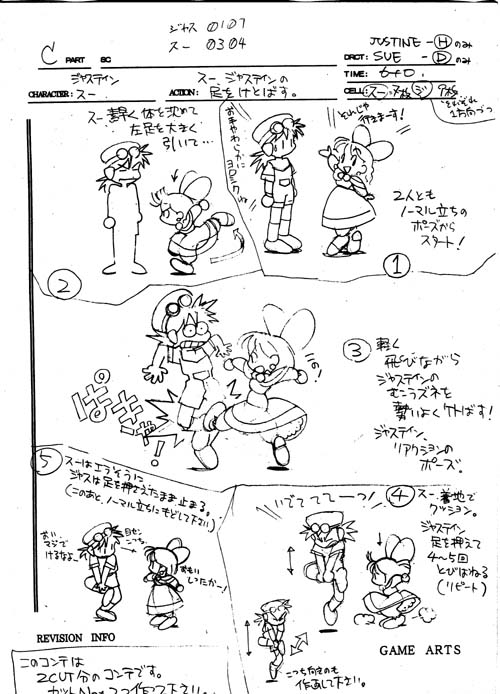 ジャス 0107
スー 0304
C PART SC
JUSTINE-Ⓗのみ
DRCT: SUE -Ⓓのみ
TIME: 6+0.
ジャスティン
CHARACTER: スー
スー、ジャスティンの
ACTION: 足をけとばす。
CELL:
それぞれ
1方向づつ
それじゃ
行きまーす!
お手やわらかに
ヨロシク
2人とも
ノーマル立ちの
ポーズから
スタート!
①
スー、素早く体を沈めて
左足を大きく
引いて…
②
③ 軽く
飛びながら
ジャスティンの
むこうズネを
勢いよくケトばす!
ジャスティン、
リアクションの
ポーズ。
ぱきゃ!
④ スー、着地で
クッション。
ジャスティン
足を押えて
4〜5回
とびはねる
(リピート)
いでてててーっ!
こっち向きのも
作画して下さい。
⑤ スーはエラそうに
ジャスは足を押さえたまま止まる。
(このあと、ノーマル立ちにもどして下さい)
おい
マジで
けるなよー
目セン
こっち
おもい
しったかー!
REVISION INFO
GAME ARTS
このコンテは
2CUT分のコンテです。